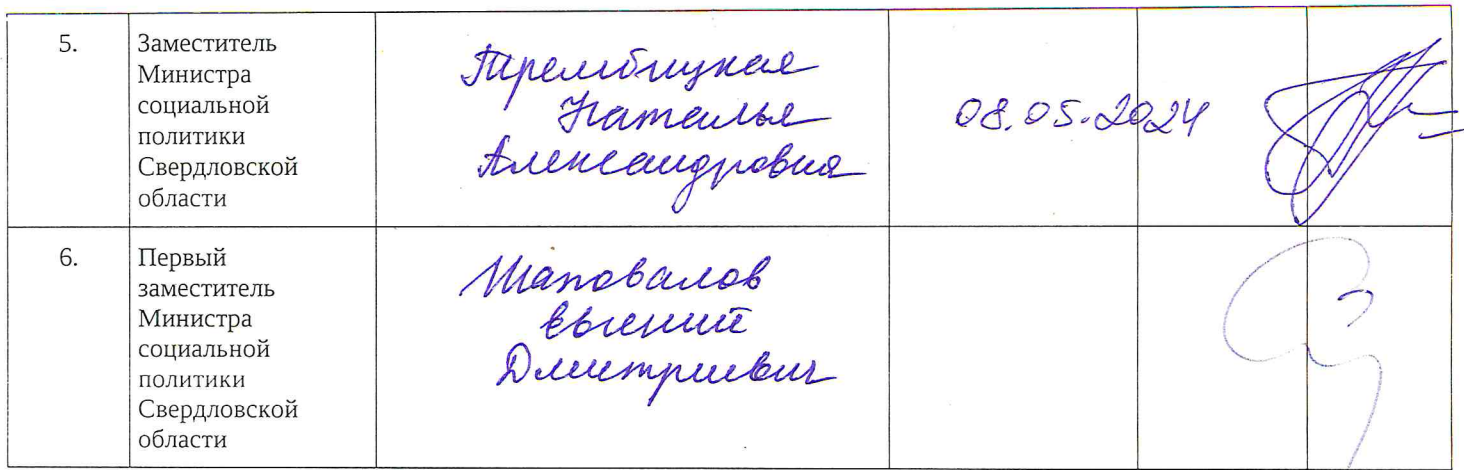 5.
Заместитель
Министра
социальной
политики
Свердловской
области
Трембицкая
Наталья
Александровна
08.05.2024
6.
Первый
заместитель
Министра
социальной
политики
Свердловской
области
Шаповалов
Евгений
Дмитриевич